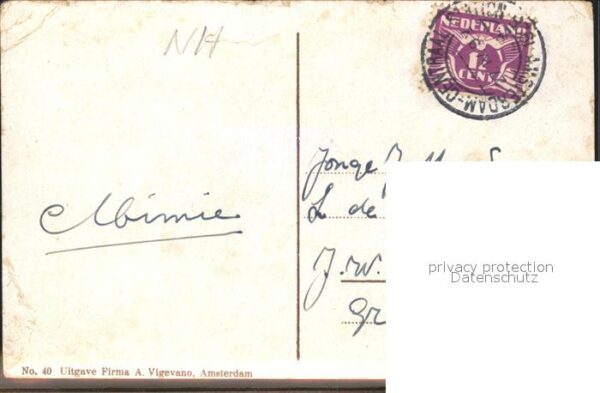 NH
NEDERLAND
1½
CENT
AMSTERDAM-CENTRAAL
Jonge
L de
J.W.
Gr
Mimie
privacy protection
Datenschutz
No. 40 Uitgave Firma A. Vigevano, Amsterdam